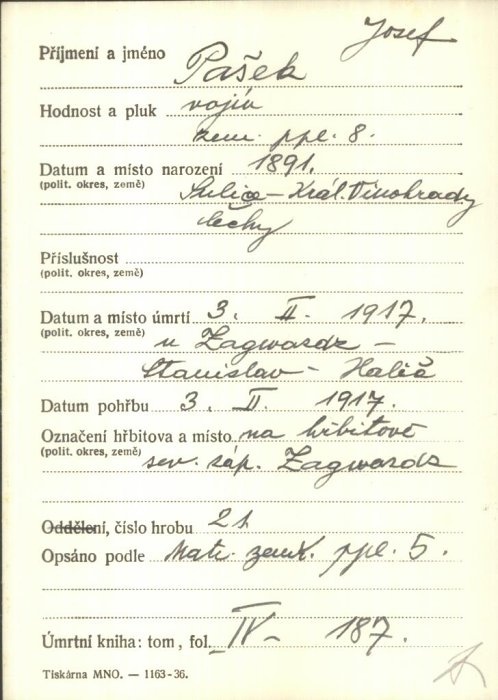 Josef
Příjmení a jméno Pašek
Hodnost a pluk vojín
zem. ppl. 8.
Datum a místo narození 1891.
(polit. okres, země) Sulice - Král. Vinohrady
Čechy
Příslušnost
(polit. okres, země)
Datum a místo úmrtí 3. II. 1917.
(polit. okres, země) u Zagwozdz -
Stanislav - Halič
Datum pohřbu 3. II. 1917.
Označení hřbitova a místo na hřbitově
(polit. okres, země) sev. záp. Zagwozdz
Oddělení, číslo hrobu 21
Opsáno podle Matr. zem. ppl. 5.
Úmrtní kniha: tom, fol. IV - 187.
Tiskárna MNO. — 1163-36.